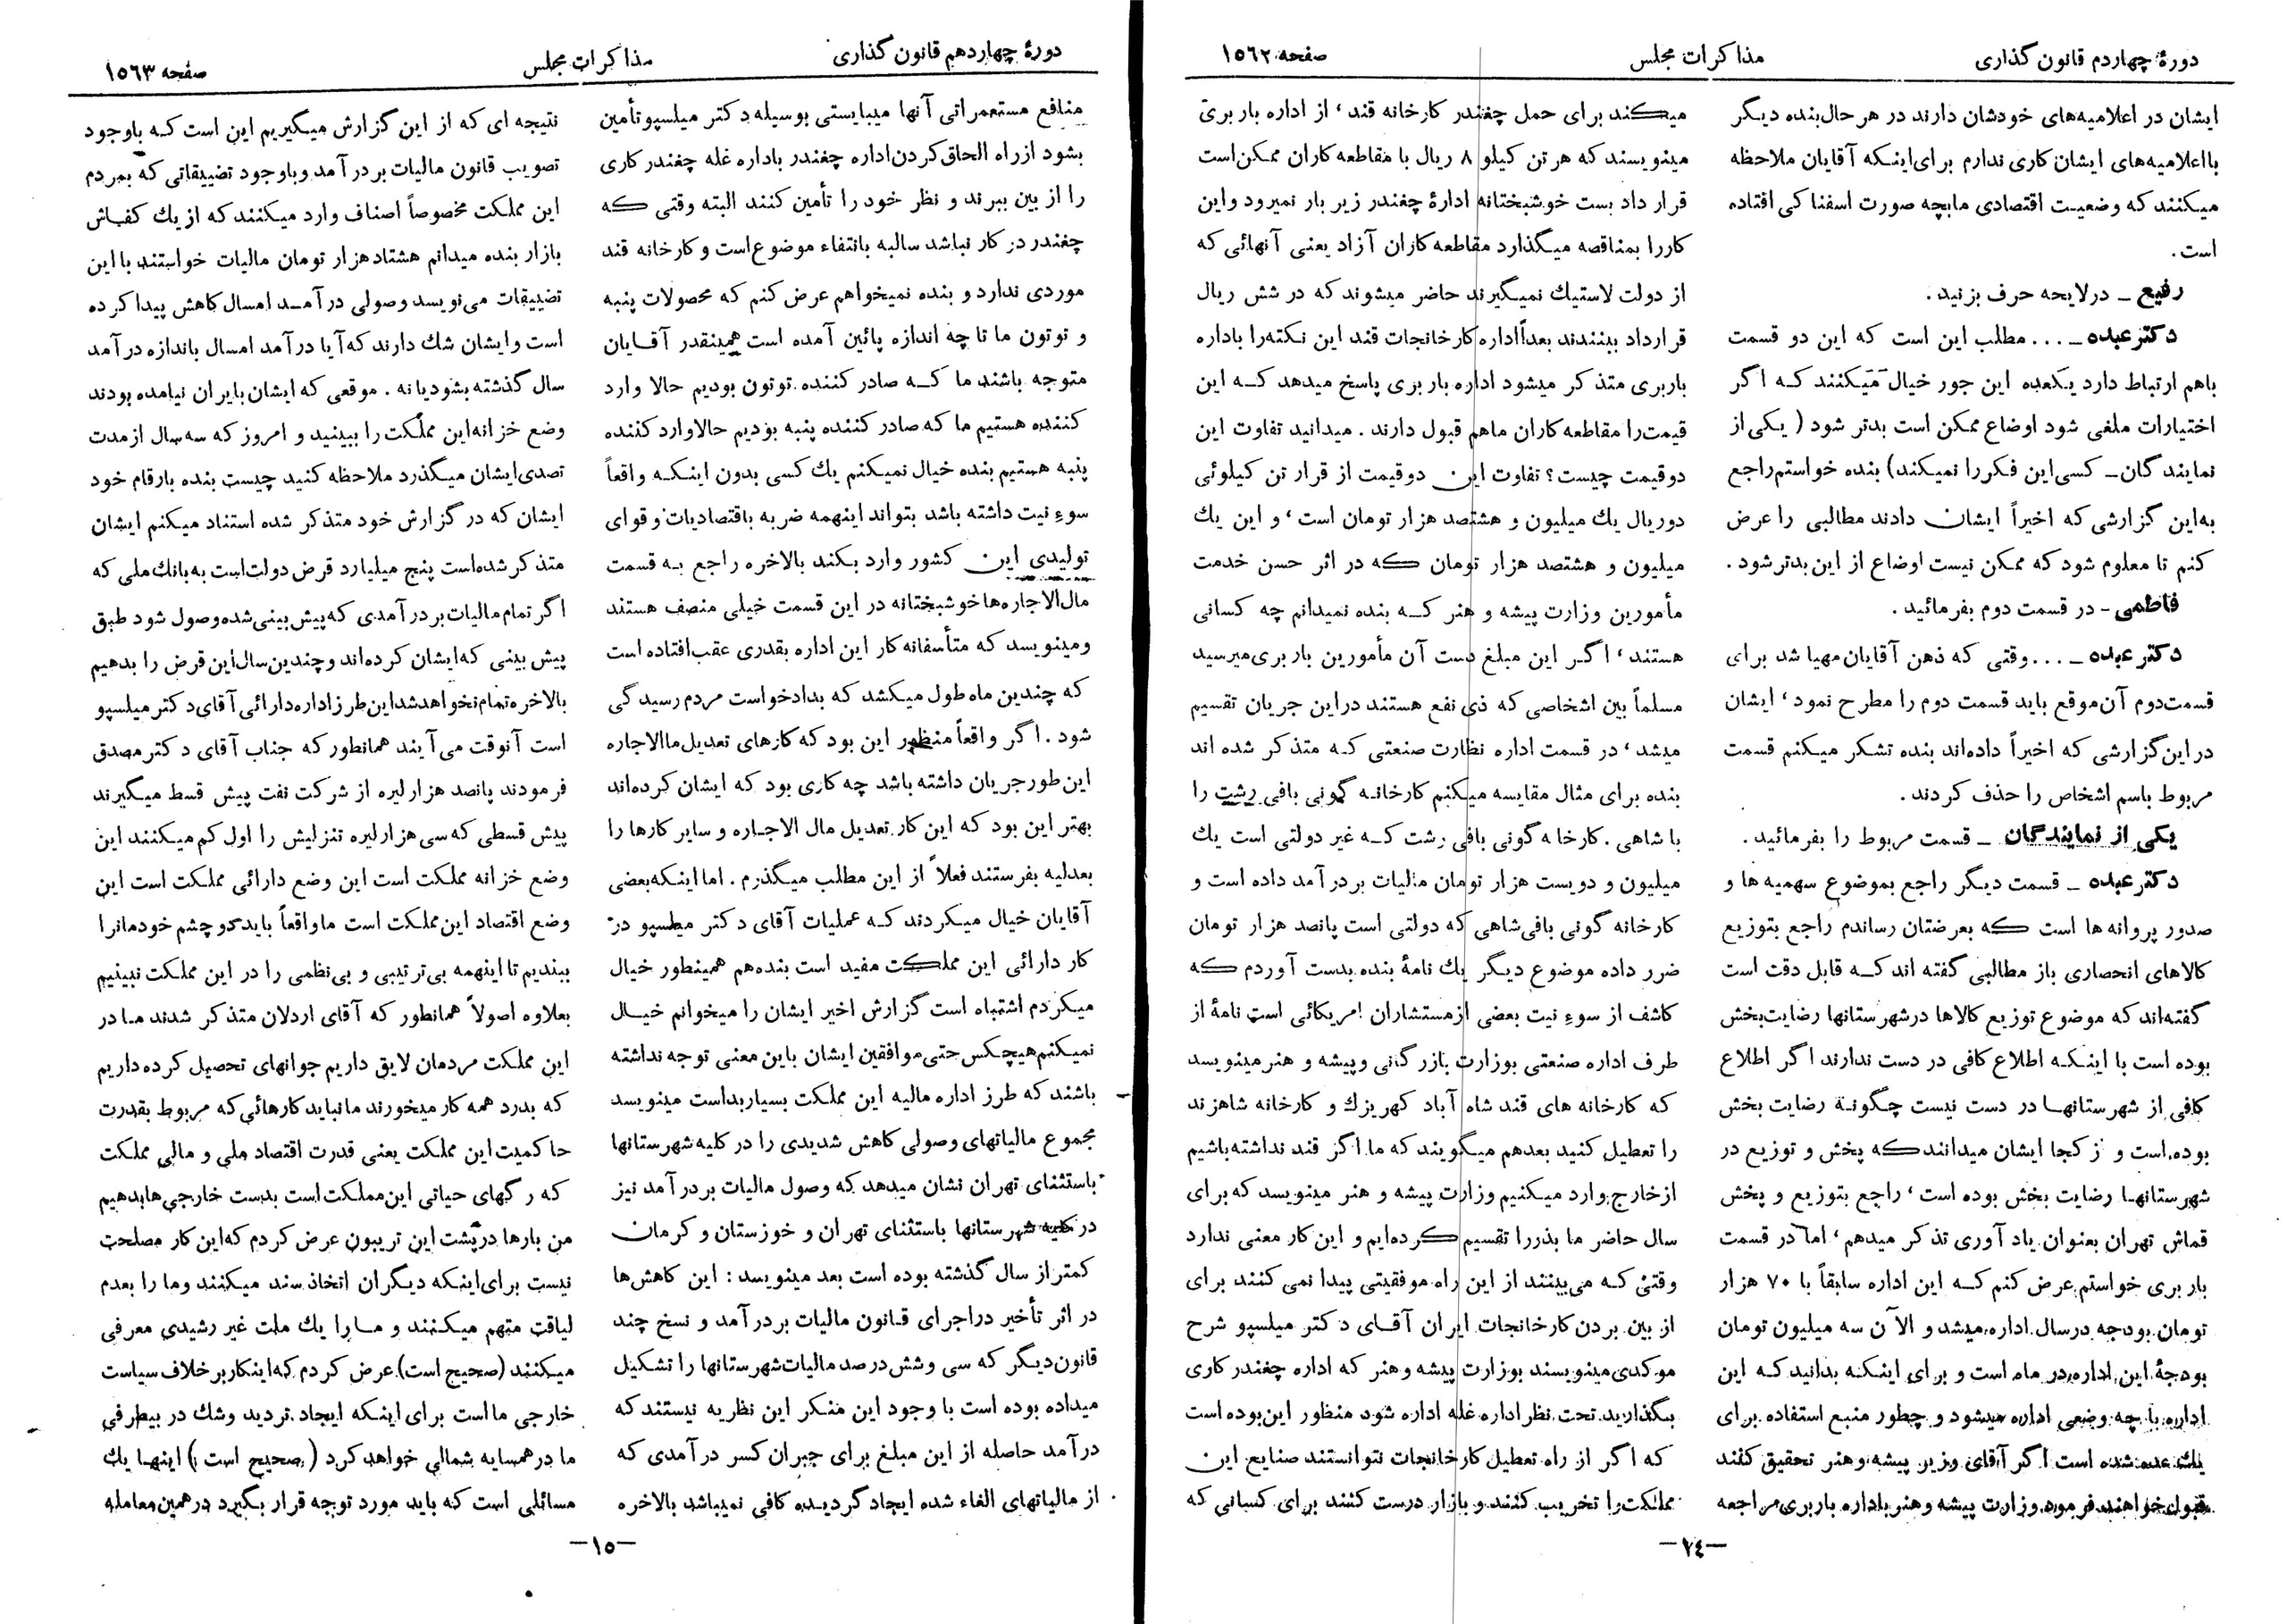 دورهٔ چهاردم قانون گذاری
مذاکرات مجلس
صفحه ۱۵۶۲
ایشان در اعلامیه‌های خودشان دارند در هر حال بنده دیگر
با اعلامیه‌های ایشان کاری ندارم برای اینکه آقایان ملاحظه
میکنند که وضعیت اقتصادی ما بچه صورت اسفناکی افتاده
است .
رفیع – در لایحه حرف بزنید .
دکتر عبده – ... مطلب این است که این دو قسمت
باهم ارتباط دارد یکعده این جور خیال میکنند که اگر
اختیارات ملغی شود اوضاع ممکن است بدتر شود ( یکی از
نمایندگان – کسی این فکر را نمیکند) بنده خواستم راجع
به این گزارشی که اخیراً ایشان دادند مطالبی را عرض
کنم تا معلوم شود که ممکن نیست اوضاع از این بدتر شود .
فاطمی – در قسمت دوم بفرمائید .
دکتر عبده – ... وقتی که ذهن آقایان مهیا شد برای
قسمت دوم آن موقع باید قسمت دوم را مطرح نمود ، ایشان
در این گزارشی که اخیراً داده‌اند بنده تشکر میکنم قسمت
مربوط باسم اشخاص را حذف کردند .
یکی از نمایندگان – قسمت مربوط را بفرمائید .
دکتر عبده – قسمت دیگر راجع بموضوع سهمیه ها و
صدور پروانه ها است که بعرضتان رساندم راجع بتوزیع
کالاهای انحصاری باز مطالبی گفته اند که قابل دقت است
گفته‌اند که موضوع توزیع کالاها در شهرستانها رضایت بخش
بوده است با اینکه اطلاع کافی در دست ندارند اگر اطلاع
کافی از شهرستانها در دست نیست چگونه رضایت بخش
بوده است و از کجا ایشان میدانند که پخش و توزیع در
شهرستانها رضایت بخش بوده است ، راجع بتوزیع و پخش
قماش تهران بعنوان یاد آوری تذکر میدهم ، اما در قسمت
باربری خواستم عرض کنم که این اداره سابقاً با ۷۰ هزار
تومان بودجه در سال اداره میشد و الآن سه میلیون تومان
بودجهٔ این اداره در ماه است و برای اینکه بدانید که این
اداره با چه وضعی اداره میشود و چطور منبع استفاده برای
یک عده شده است اگر آقای وزیر پیشه و هنر تحقیق کنند
قبول خواهند فرمود وزارت پیشه و هنر باداره باربری مراجعه
میکند برای حمل چغندر کارخانه قند ، از اداره باربری
مینویسند که هر تن کیلو ۸ ریال با مقاطعه کاران ممکن است
قرار داد بست خوشبختانه ادارهٔ چغندر زیر بار نمیرود و این
کار را بمناقصه میگذارد مقاطعه کاران آزاد یعنی آنهائی که
از دولت لاستیک نمیگیرند حاضر میشوند که در شش ریال
قرارداد ببندند بعداً اداره کارخانجات قند این نکته را باداره
باربری متذکر میشود اداره باربری پاسخ میدهد که این
قیمت را مقاطعه کاران ما هم قبول دارند . میدانید تفاوت این
دو قیمت چیست ؟ تفاوت این دو قیمت از قرار تن کیلوئی
دو ریال یک میلیون و هشتصد هزار تومان است ، و این یک
میلیون و هشتصد هزار تومان که در اثر حسن خدمت
مأمورین وزارت پیشه و هنر که بنده نمیدانم چه کسانی
هستند ، اگر این مبلغ دست آن مأمورین باربری میرسید
مسلماً بین اشخاصی که ذی نفع هستند در این جریان تقسیم
میشد ، در قسمت اداره نظارت صنعتی که متذکر شده اند
بنده برای مثال مقایسه میکنم کارخانه گونی بافی رشت را
با شاهی . کارخانه گونی بافی رشت که غیر دولتی است یک
میلیون و دویست هزار تومان مالیات بردرآمد داده است و
کارخانه گونی بافی شاهی که دولتی است پانصد هزار تومان
ضرر داده موضوع دیگر یک نامهٔ بنده بدست آوردم که
کاشف از سوء نیت بعضی از مستشاران امریکائی است نامهٔ از
طرف اداره صنعتی بوزارت بازرگانی و پیشه و هنر مینویسد
که کارخانه های قند شاه آباد کهریزک و کارخانه شاهزند
را تعطیل کنید بعد هم میگویند که ما اگر قند نداشته باشیم
از خارج وارد میکنیم وزارت پیشه و هنر مینویسد که برای
سال حاضر ما بذر را تقسیم کرده‌ایم و این کار معنی ندارد
وقتی که می‌بینند از این راه موفقیتی پیدا نمی کنند برای
از بین بردن کارخانجات ایران آقای دکتر میلسپو شرح
موکدی مینویسند بوزارت پیشه و هنر که اداره چغندر کاری
بگذارید تحت نظر اداره غله اداره شود منظور این بوده است
که اگر از راه تعطیل کارخانجات نتوانستند صنایع این
مملکت را تخریب کنند و بازار درست کنند برای کسانی که
–۲٤–
دورهٔ چهاردهم قانون گذاری
مذاکرات مجلس
صفحه ۱۵۶۳
منافع مستعمراتی آنها میبایستی بوسیله دکتر میلسپو تأمین
بشود از راه الحاق کردن اداره چغندر باداره غله چغندر کاری
را از بین ببرند و نظر خود را تأمین کنند البته وقتی که
چغندر در کار نباشد سالبه بانتفاء موضوع است و کارخانه قند
موردی ندارد و بنده نمیخواهم عرض کنم که محصولات پنبه
و توتون ما تا چه اندازه پائین آمده است همینقدر آقایان
متوجه باشند ما که صادر کننده توتون بودیم حالا وارد
کننده هستیم ما که صادر کننده پنبه بودیم حالا وارد کننده
پنبه هستیم بنده خیال نمیکنم یک کسی بدون اینکه واقعاً
سوء نیت داشته باشد بتواند اینهمه ضربه باقتصادیات و قوای
تولیدی این کشور وارد بکند بالاخره راجع به قسمت
مال‌الاجاره‌ها خوشبختانه در این قسمت خیلی منصف هستند
و مینویسد که متأسفانه کار این اداره بقدری عقب افتاده است
که چندین ماه طول میکشد که بدادخواست مردم رسیدگی
شود . اگر واقعاً منظور این بود که کارهای تعدیل مالاالاجاره
این طور جریان داشته باشد چه کاری بود که ایشان کرده‌اند
بهتر این بود که این کار تعدیل مال الاجاره و سایر کارها را
بعدلیه بفرستند فعلاً از این مطلب میگذرم . اما اینکه بعضی
آقایان خیال میکردند که عملیات آقای دکتر میلسپو در
کار دارائی این مملکت مفید است بنده هم همینطور خیال
میکردم اشتباه است گزارش اخیر ایشان را میخوانم خیال
نمیکنم هیچکس حتی موافقین ایشان باین معنی توجه نداشته
باشند که طرز اداره مالیه این مملکت بسیار بد است مینویسد
مجموع مالیاتهای وصولی کاهش شدیدی را در کلیه شهرستانها
باستثنای تهران نشان میدهد که وصول مالیات بردرآمد نیز
در کلیه شهرستانها باستثنای تهران و خوزستان و کرمان
کمتر از سال گذشته بوده است بعد مینویسد : این کاهش‌ها
در اثر تأخیر در اجرای قانون مالیات بردرآمد و نسخ چند
قانون دیگر که سی و شش درصد مالیات شهرستانها را تشکیل
میداده بوده است با وجود این منکر این نظریه نیستند که
درآمد حاصله از این مبلغ برای جبران کسر درآمدی که
از مالیاتهای الغاء شده ایجاد گردیده کافی نمیباشد بالاخره
نتیجه ای که از این گزارش میگیریم این است که باوجود
تصویب قانون مالیات بردرآمد و باوجود تضییقاتی که بمردم
این مملکت مخصوصاً اصناف وارد میکنند که از یک کفاش
بازار بنده میدانم هشتاد هزار تومان مالیات خواستند با این
تضییقات می‌نویسد وصولی درآمد امسال کاهش پیدا کرده
است و ایشان شك دارند که آیا درآمد امسال باندازه درآمد
سال گذشته بشود یا نه . موقعی که ایشان بایران نیامده بودند
وضع خزانه این مملکت را ببینید و امروز که سه سال از مدت
تصدی ایشان میگذرد ملاحظه کنید چیست بنده بارقام خود
ایشان که در گزارش خود متذکر شده استناد میکنم ایشان
متذکر شده‌است پنج میلیارد قرض دولت است به بانک ملی که
اگر تمام مالیات بردرآمدی که پیش بینی شده وصول شود طبق
پیش بینی که ایشان کرده‌اند و چندین سال این قرض را بدهیم
بالاخره تمام نخواهد شد این طرز اداره دارائی آقای دکتر میلسپو
است آنوقت می‌آیند همانطور که جناب آقای دکتر مصدق
فرمودند پانصد هزار لیره از شرکت نفت پیش قسط میگیرند
پیش قسطی که سی هزار لیره تنزیلش را اول کم میکنند این
وضع خزانه مملکت است این وضع دارائی مملکت است این
وضع اقتصاد این مملکت است ما واقعاً باید دو چشم خودمانرا
ببندیم تا اینهمه بی‌ترتیبی و بی‌نظمی را در این مملکت نبینیم
بعلاوه اصولاً همانطور که آقای اردلان متذکر شدند ما در
این مملکت مردمان لایق داریم جوانهای تحصیل کرده داریم
که بدرد همه کار میخورند ما نباید کارهائی که مربوط بقدرت
حاکمیت این مملکت یعنی قدرت اقتصاد ملی و مالی مملکت
که رگهای حیاتی این مملکت است بدست خارجی ها بدهیم
من بارها در پشت این تریبون عرض کردم که این کار مصلحت
نیست برای اینکه دیگران اتخاذ سند میکنند و ما را بعدم
لیاقت متهم میکنند و ما را یک ملت غیر رشیدی معرفی
میکنند (صحیح است) عرض کردم که اینکار بر خلاف سیاست
خارجی ما است برای اینکه ایجاد تردید و شك در بیطرفی
ما در همسایه شمالی خواهد کرد ( صحیح است ) اینها یک
مسائلی است که باید مورد توجه قرار بگیرد در همین معامله
–۱۵–